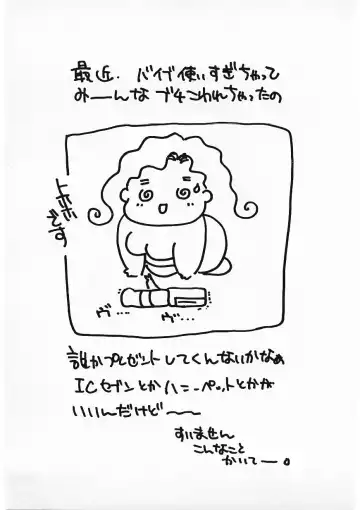 最近、バイブ使いすぎちゃって
みーんなブチこわれちゃったの
トホホです
ヴ…
ヴ…
誰かプレゼントしてくんないかなぁ
ICセブンとかハニーペットとかが
いいんだけど〜〜
すいません
こんなこと
かいて—。